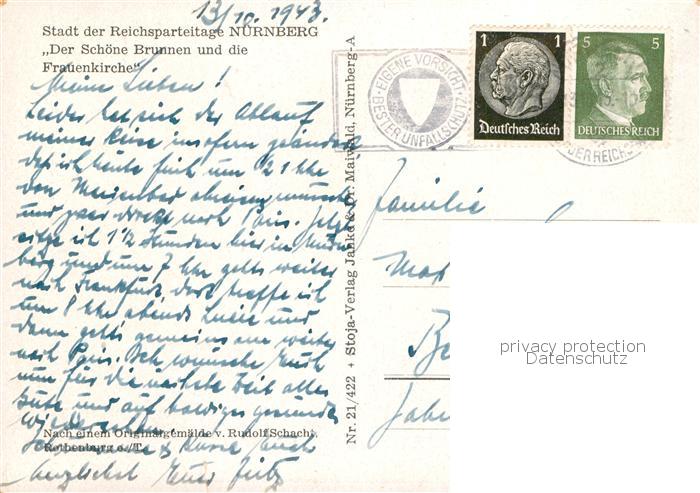 13/10. 1943.
Stadt der Reichsparteitage NÜRNBERG
„Der Schöne Brunnen und die
Frauenkirche"
Meine Lieben!
Leider hat sich der Ablauf
meiner Reise insofern geändert
daß ich heute früh um
von Marienbad abreisen musste
und zwar direkt nach Paris. Jetzt
sitze ich 1½ Stunden hier in Nürn
berg und um 7 Uhr geht's weiter
nach Frankfurt dort treffe ich
um 8 Uhr abends und
dann geht's gemeinsam weiter
nach Paris. Ich wünsche Euch
nun für die nächste Zeit alles
Gute und auf baldiges gesundes
Wiedersehen.
Nach einem Originalgemälde v. Rudolf Schacht,
Rothenburg o./T.
Euer Fritz
Nr. 21/422 + Stoja-Verlag Janke & Dr. Maiwald, Nürnberg-A
EIGENE VORSICHT
BESTER UNFALLSCHUTZ
1 1
Deutsches Reich
5 5
DEUTSCHES REICH
DER REICHS
Familie
privacy protection
Datenschutz